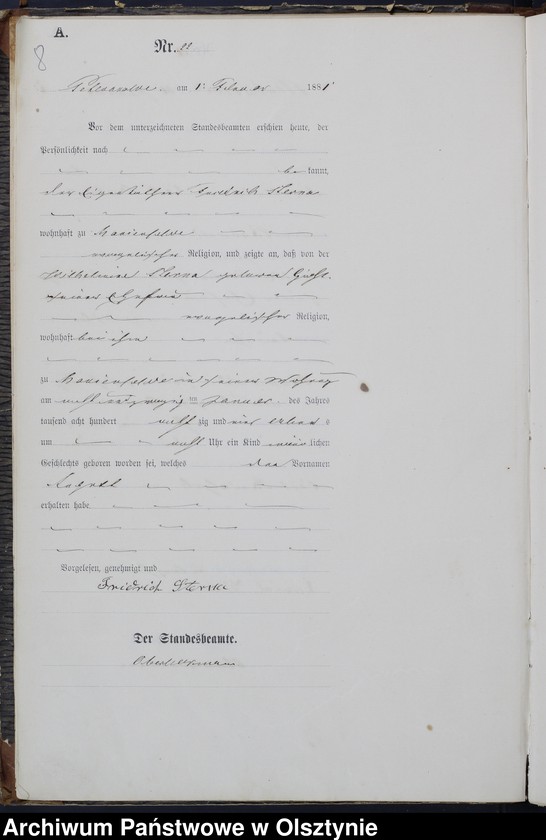 A.
8
Nr.
am 1 Februar 1881
Vor dem unterzeichneten Standesbeamten erschien heute, der
Persönlichkeit nach
be kannt,
der Eigenkäthner Friedrich
wohnhaft zu Marienfelde
evangelischer Religion, und zeigte an, daß von der
Wilhelmine geborene
seiner Ehefrau
evangelischer Religion,
wohnhaft bei ihm
zu Marienfelde in seiner Wohnung
am acht und zwanzig ten Januar des Jahres
tausend acht hundert acht zig und eins
um acht Uhr ein Kind männ lichen
Geschlechts geboren worden sei, welches den Vornamen
August
erhalten habe.
Vorgelesen, genehmigt und
Friedrich
Der Standesbeamte.
Archiwum Państwowe w Olsztynie